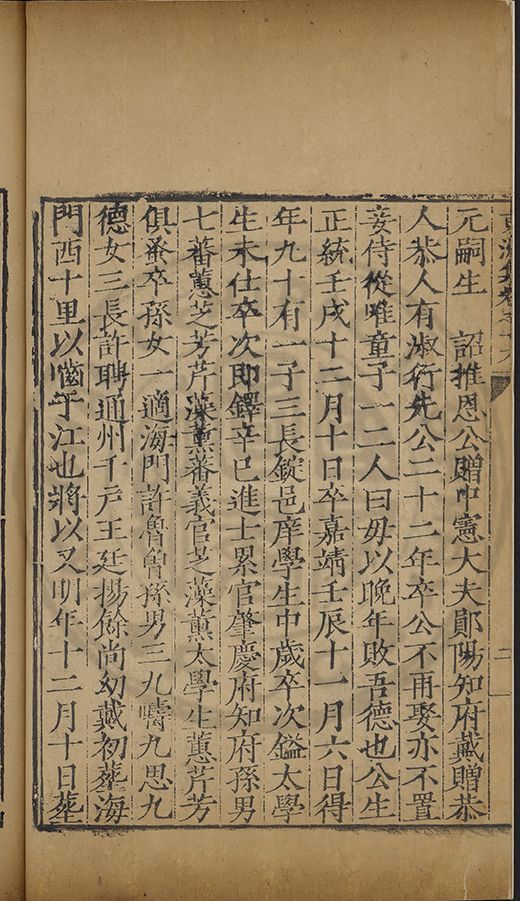 元嗣生　詔推恩公贈中憲大夫鄖陽知府戴贈恭
人恭人有淑行先公二十二年卒公不再娶亦不置
妾侍從唯童子一二人曰毋以晚年敗吾德也公生
正統壬戌十二月十日卒嘉靖壬辰十一月六日得
年九十有一子三長錠邑庠學生中歲卒次鎰太學
生未仕卒次即鐸辛巳進士累官肇慶府知府孫男
七蕃蕙芝芳芹藻薰蕃義官芝藻薰太學生蕙芹芳
俱蚤卒孫女一適海門許魯曾孫男三九疇九思九
德女三長許聘通州千戶王廷揚餘尚幼戴初塟海
門西十里以嚙于江也將以又明年十二月十日塟